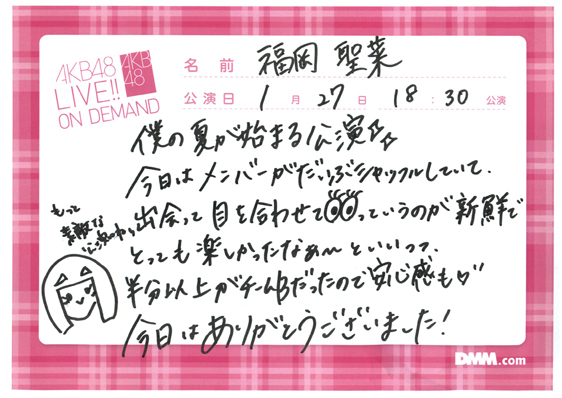 AKB48
LIVE!!
ON DEMAND
AKB
48
名前 福岡 聖菜
公演日 1月27日 18:30公演
僕の夏が始まる公演☆☆
今日はメンバーがだいぶシャッフルしていて、
出会って目を合わせて っていうのが新鮮で
とっても楽しかったなぁ〜といいつつ、
半分以上がチームBだったので安心感も♡
今日はありがとうございました!
もっと
素敵な
DMM.com